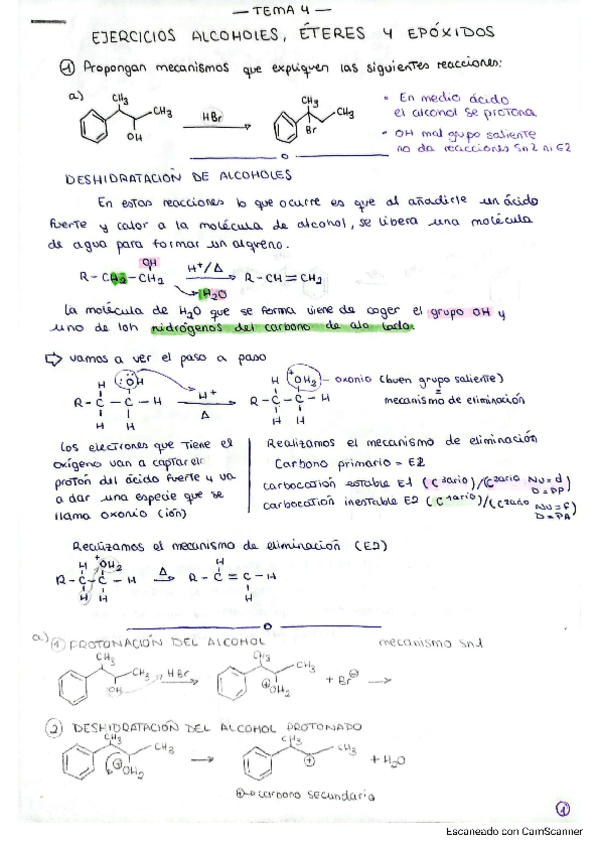 — TEMA 4 —
EJERCICIOS ALCOHOLES, ÉTERES Y EPÓXIDOS
① Propongan mecanismos que expliquen las siguientes reacciones:
a) CH3 CH3 OH HBr CH3 CH3 Br
• En medio ácido
el alcohol se protona
• OH mal grupo saliente
no da reacciones Sn2 ni E2
DESHIDRATACIÓN DE ALCOHOLES
En estas reacciones lo que ocurre es que al añadirle un ácido
fuerte y calor a la molécula de alcohol, se libera una molécula
de agua para formar un alqueno.
OH
R - CH2 - CH2 H+/Δ → R - CH = CH2
H2O
La molécula de H2O que se forma viene de coger el grupo OH y
uno de loh hidrógenos del carbono de alo lado.
⇨ vamos a ver el paso a paso
H :ÖH H +OH2 - oxonio (buen grupo saliente)
R - C - C - H H+ → R - C - C - H mecanismo de eliminación
H H Δ H H
Los electrones que tiene el
oxígeno van a captar el
protón del ácido fuerte y va
a dar una especie que se
llama oxonio (ión)
Realizamos el mecanismo de eliminación
Carbono primario = E2
carbocatión estable E1 (C 3ario)/(C 2ario Nu=d D=PP)
carbocatión inestable E2 (C 1ario)/(C 2ado Nu=F D=PA)
Realizamos el mecanismo de eliminación (E2)
H +OH2 H
R - C - C - H Δ → R - C = C - H
H H H
a) ① PROTONACIÓN DEL ALCOHOL mecanismo Sn1
CH3 CH3 OH HBr → CH3 CH3 ⊕OH2 + Br⊖ →
② DESHIDRATACIÓN DEL ALCOHOL PROTONADO
CH3 CH3 ⊕OH2 → CH3 CH3 ⊕ + H2O
⊕→carbono secundario
①
Escaneado con CamScanner